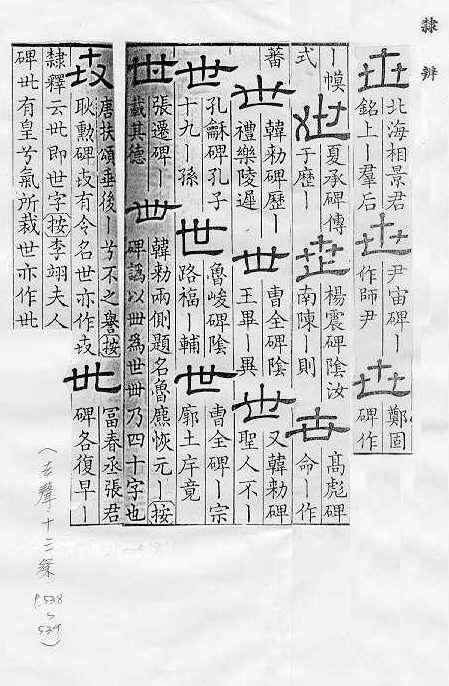 隸辨
世
北海相景君
銘上丨羣后
世
尹宙碑丨
作師尹
世
鄭固
碑作
丨幙
式
世
夏承碑傳
于歷丨
世
楊震碑陰汝
南陳丨則
世
高彪碑
命丨作
蕃
世
韓勑碑歷丨
禮樂陵遲
世
曹全碑陰
王畢丨異
世
又韓勑碑
聖人不丨
世
孔龢碑孔子
十九丨孫
世
魯峻碑陰
路福丨輔
世
曹全碑丨宗
廓土斥竟
世
張遷碑丨
載其德
丗
韓勑兩側題名魯麃恢元丨按
碑譌以丗為世丗乃四十字也
唐扶頌垂後丨兮不之譽按
耿勳碑有令名世亦作
丗
富春丞張君
碑各復早丨
隸釋云丗即世字按李翊夫人
碑丗有皇兮氣所裁世亦作丗
(去聲十三祭
p.538
~
539)